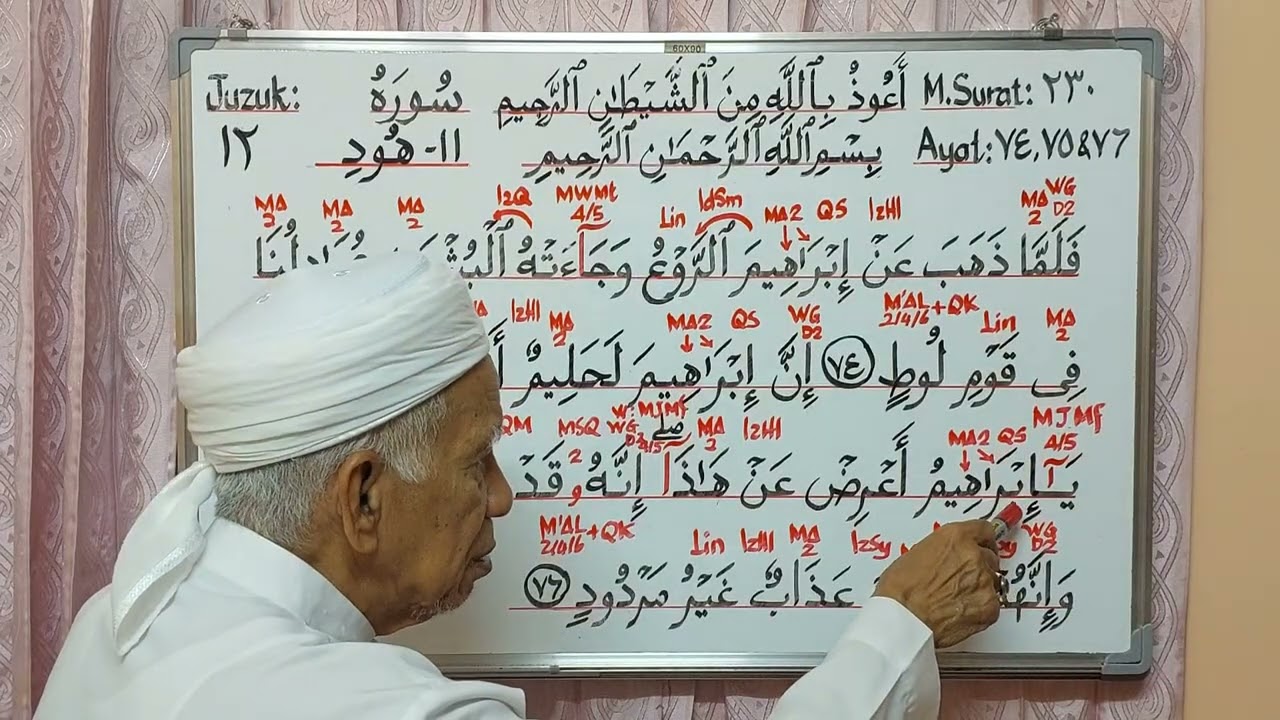 60X90
Juzuk: سُورَةُ أَعُوذُ بِٱللَّهِ مِنَ ٱلشَّيْطَانِ ٱلرَّجِيمِ M.Surat: ٢٣٠
١٢ ١١- هُودٍ بِسْمِ ٱللَّهِ ٱلرَّحْمَـٰنِ ٱلرَّحِيمِ Ayat: ٧٤,٧٥&٧٦
MA 2 MA 2 MA 2 IzQ MWMt 4/5 Lin IdSm MA2 QS IzHl MA 2 WG D2
فَلَمَّا ذَهَبَ عَنْ إِبْرَاهِيمَ ٱلرَّوْعُ وَجَآءَتْهُ
IzHl MA 2 MA2 QS WG D2 M'AL+QK 2/4/6 Lin MA 2
فِى قَوْمِ لُوطٍ ٧٤ إِنَّ إِبْرَاهِيمَ لَحَلِيمٌ
QM MSQ 2 WG D2 MJMf 4/5 صلے MA 2 IzHl MA2 QS MJMf 4/5
يَـٰٓإِبْرَاهِيمُ أَعْرِضْ عَنْ هَـٰذَآ إِنَّهُۥ قَدْ
M'AL+QK 2/4/6 Lin IzHl MA 2 IzSy WG D2
وَإِنَّهُمْ عَذَابٌ غَيْرُ مَرْدُودٍ ٧٦